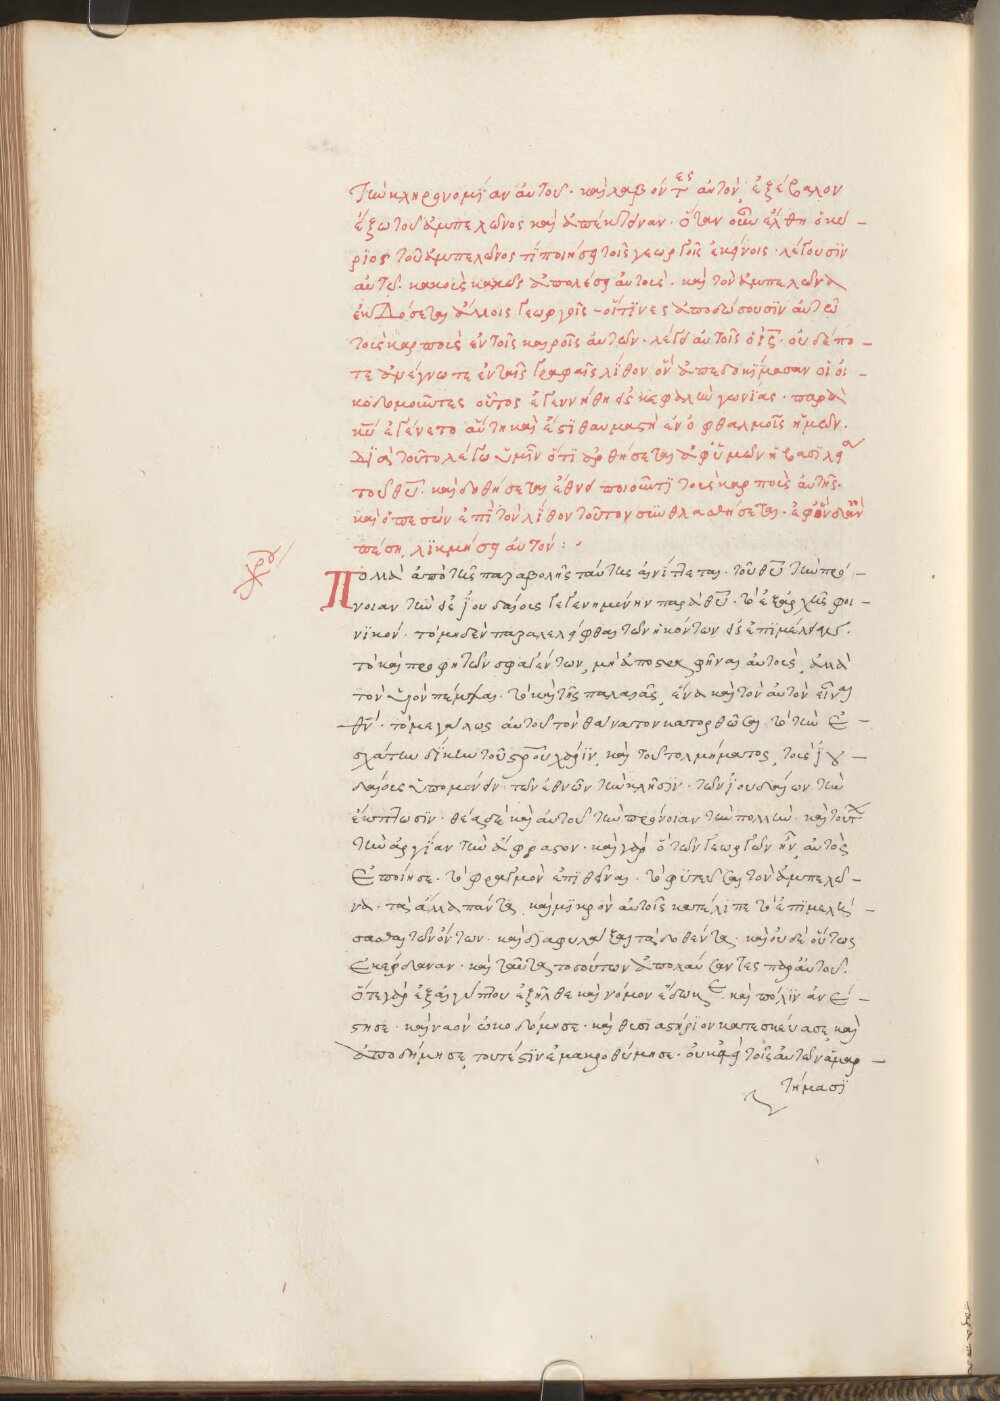 τὴν κληρονομίαν αὐτοῦ· καὶ λαβόντες αὐτὸν, ἐξέβαλον
ἔξω τοῦ ἀμπελῶνος καὶ ἀπέκτειναν· ὅταν οὖν ἔλθη ὁ κύ-
ριος τοῦ ἀμπελῶνος τί ποιήσει τοῖς γεωργοῖς ἐκείνοις· λέγουσιν
αὐτῶ· κακοὺς κακῶς ἀπολέσει αὐτούς· καὶ τὸν ἀμπελῶνα
ἐκδόσεται ἄλλοις γεωργοῖς· οἵτινες ἀποδώσουσιν αὐτῶ
τοὺς καρποὺς ἐν τοῖς καιροῖς αὐτῶν· λέγει αὐτοῖς ὁ ις· οὐδέπο-
τε ἀνέγνωτε ἐν ταῖς γραφαῖς λίθον ὃν ἀπεδοκίμασαν οἱ οἰ-
κοδομοῦντες οὗτος ἐγεννήθη εἰς κεφαλὴν γωνίας· παρὰ
κυ ἐγένετο αὕτη καὶ ἔστι θαυμαστὴ ἐν ὀφθαλμοῖς ἡμῶν·
διὰ τοῦτο λέγω ὑμῖν ὅτι ἀρθήσεται ἀφ' ὑμῶν ἡ βασιλεία
τοῦ θυ· καὶ δοθήσεται ἔθνει ποιοῦντι τοὺς καρποὺς αὐτῆς·
καὶ ὁ πεσὼν ἐπὶ τὸν λίθον τοῦτον συνθλασθήσεται· ἐφ' ὃν δ' ἂν
πέση, λικμήσει αὐτόν:
Πολλὰ ἀπὸ τῆς παραβολῆς ταύτης αἰνίττεται· τοῦ θυ τὴν πρό-
νοιαν τὴν εἰς ἰουδαίους γεγενημένην παρὰ θυ· τὸ ἐξ ἀρχῆς φο-
νικόν· τὸ μηδὲν παραλελεῖφθαι τῶν ἡκόντων εἰς ἐπιμέλειαν·
τὸ καὶ προφητῶν σφαγέντων, μὴ ἀποστραφῆναι αὐτούς, ἀλλὰ
τὸν υἱὸν πέμψαι· τὸ καὶ τῆς παλαιᾶς, ἕνα καὶ τὸν αὐτὸν εἶναι
θν· τὸ μεγάλως αὐτοῦ τὸν θάνατον κατορθῶσαι· τὸ τὴν ἐ-
σχάτην δίκην τοῦ στρου λαβεῖν, καὶ τοῦ τολμήματος, τοὺς ἰου-
δαίους ὑπομένειν· τῶν ἐθνῶν τὴν κλῆσιν· τῶν ἰουδαίων τὴν
ἔκπτωσιν· θέα δὲ καὶ αὐτοῦ τὴν πρόνοιαν τὴν πολλὴν· καὶ τούτων
τὴν ἀργίαν τὴν ἄφραστον· καὶ γὰρ ὃ τῶν γεωργῶν ἦν, αὐτὸς
ἐποίησε· τὸ φραγμὸν ἐπιθεῖναι· τὸ φυτεῦσαι τὸν ἀμπελῶ-
να· τὰ ἄλλα πάντα, καὶ μικρὸν αὐτοῖς κατέλιπε τὸ ἐπιμελή-
σασθαι τῶν ὄντων· καὶ διαφυλάξαι τὰ δοθέντα· καὶ οὐδὲ οὕτως
ἐκέρδαναν· καὶ ταῦτα τοσούτων ἀπολαύσαντες παρ' αὐτοῦ·
ὅτε γὰρ ἐξ αἰγύπτου ἐξῆλθε καὶ νόμον ἔδωκε· καὶ πόλιν ἀνέ-
στησε· καὶ ναὸν ὠκοδόμησε· καὶ θυσιαστήριον κατεσκεύασε, καὶ
ἀπεδήμησε, τουτέστιν ἐμακροθύμησε· οὐκ ἀεὶ τοῖς αὐτῶν ἁμαρ-
τήμασι